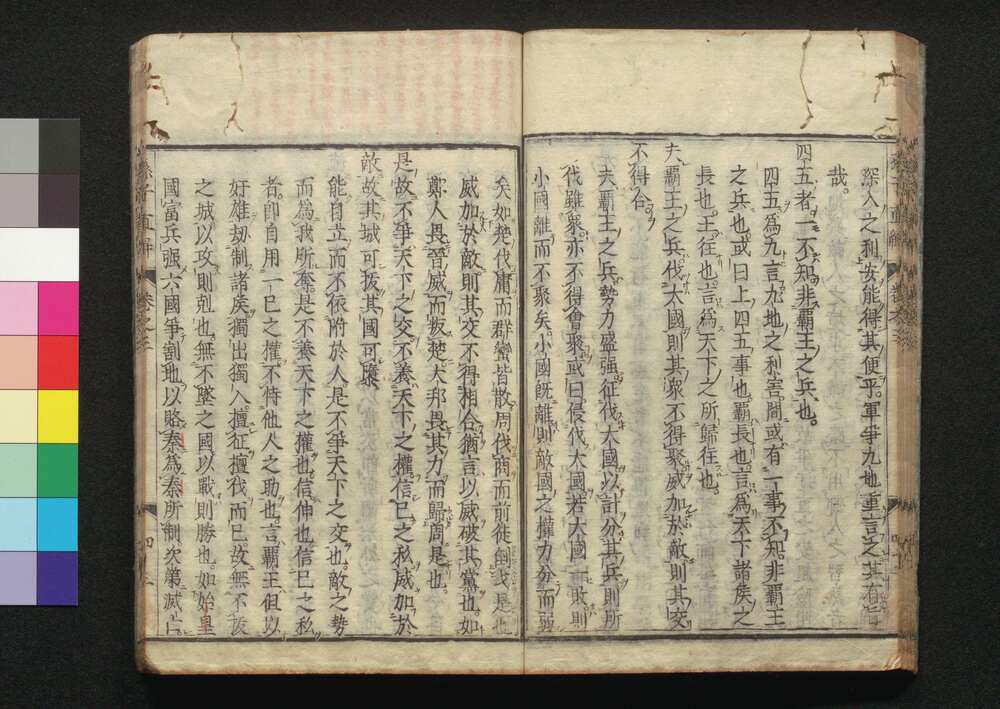 深入之利安能得其便乎軍爭九地重言之其有旨
哉
四五者一不知非霸王之兵也
四五爲九言九地之利害間或有一事不知非霸王
之兵也或曰上四五事也霸長也言爲天下諸矦之
長也王往也言爲天下之所歸往也
夫霸王之兵伐大國則其衆不得聚威加於敵則其交
不得合
夫霸王之兵勢力盛强征伐大國以計分其兵則所
伐雖衆亦不得會聚或曰侵伐大國若大國一敗則
小國離而不聚矣小國旣離則敵國之權力分而弱
矣如楚伐庸而群蠻皆散周伐商而前徒倒戈是也
威加於敵則其交不得相合猶言以威破其黨也如
鄭人畏晉威而叛楚大邦畏其力而歸周是也
是故不爭天下之交不養天下之權信已之私威加於
敵故其城可拔其國可隳
能自立而不依附於人是不爭天下之交也敵之勢
而爲我所奪是不養天下之權也信伸也信已之私
者卽自用一已之權不恃他人之助也言霸王但以
奸雄劫制諸矦獨出獨入擅征擅伐而已故無不拔
之城以攻則剋也無不墜之國以戰則勝也如始皇
國富兵强六國爭割地以賂秦爲秦所制次第滅亡
孫子直解
卷之三